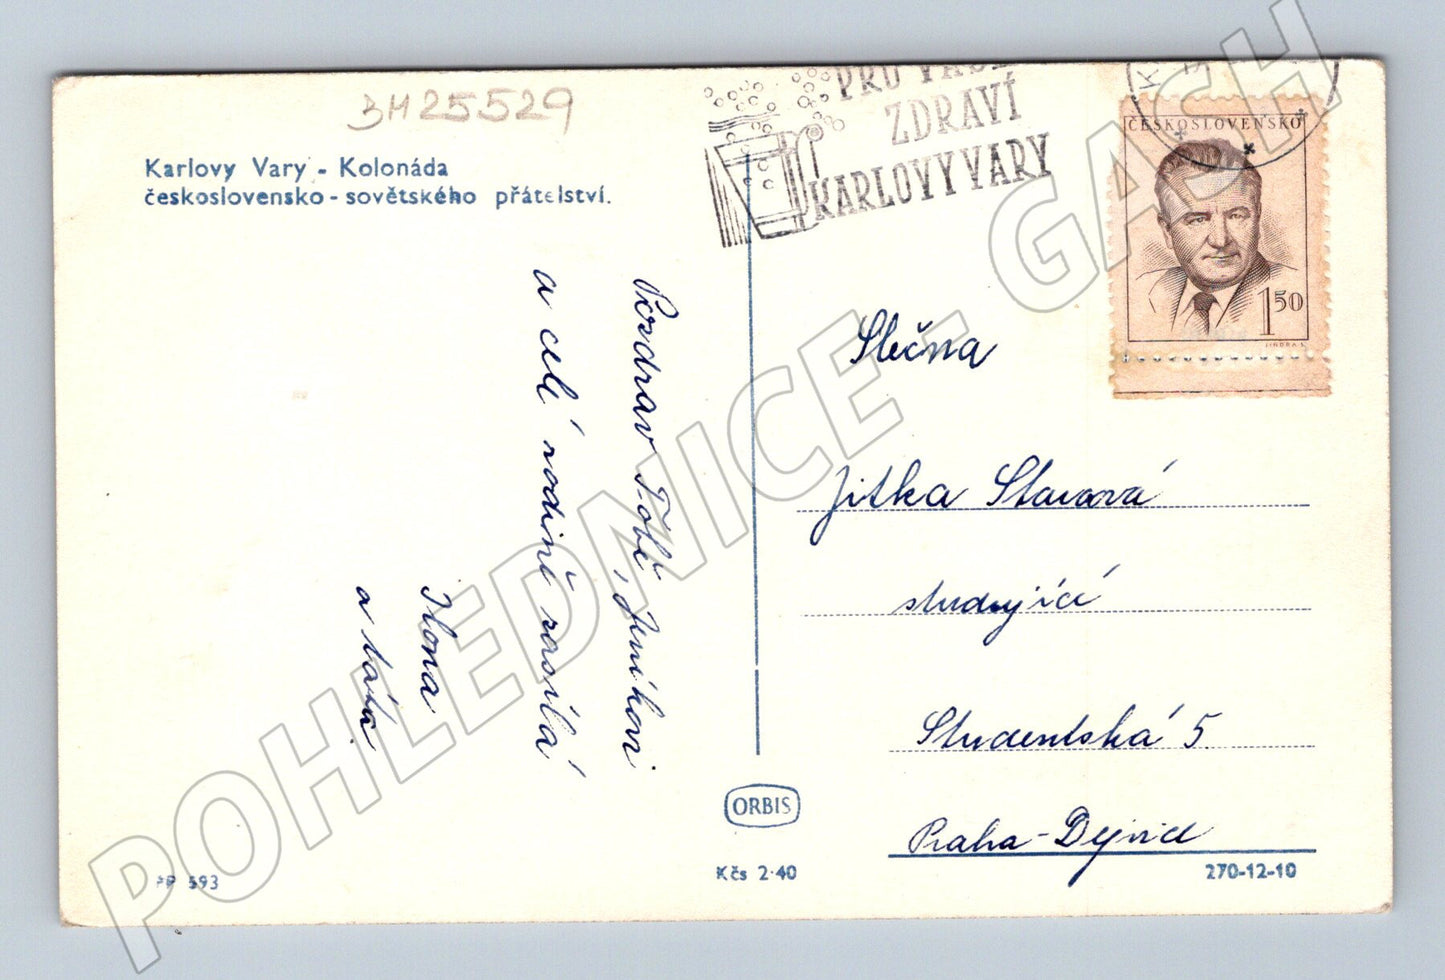 BH25529
Karlovy Vary - Kolonáda
československo - sovětského přátelství.
PRO VAŠE
ZDRAVÍ
KARLOVY VARY
ČESKOSLOVENSKO
1 50
JINDRA S.
Pozdrav Tobě, Jeníkovi
a celé rodině zasílá
Ilona
a táta.
Slečna
Jitka
studující
Studentská 5.
Praha-Dejvice
ORBIS
PP 593
Kčs 2·40
270-12-10
POHLEDNICE - GASH